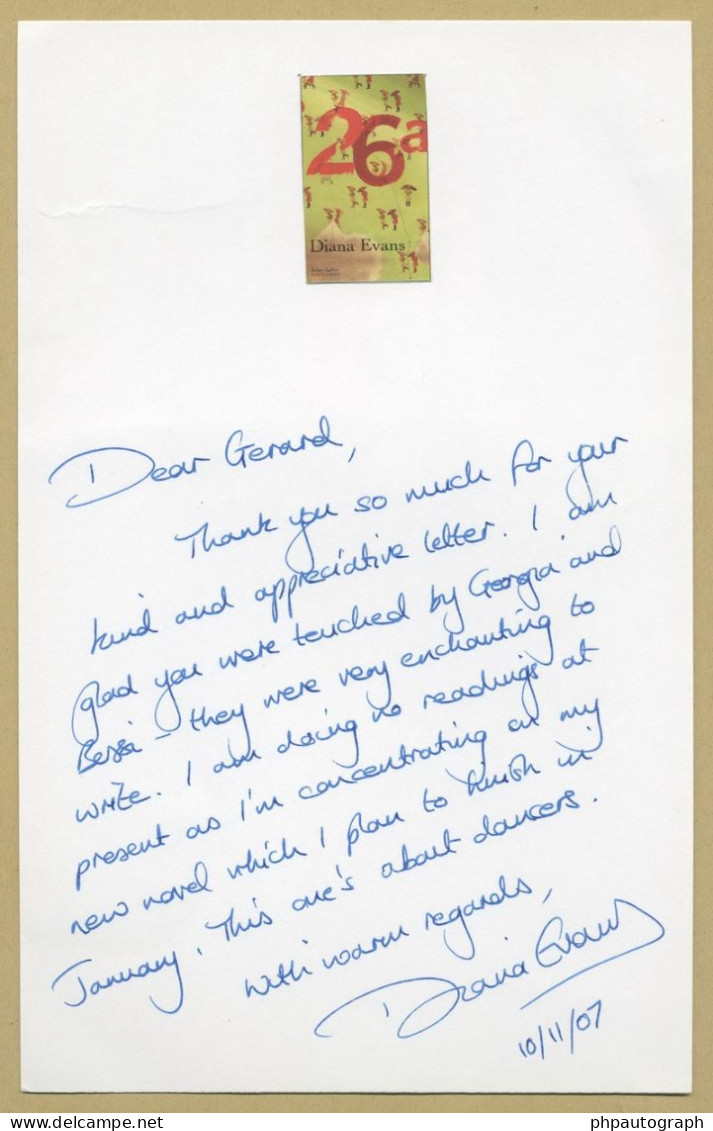 26a
Diana Evans
Dear Gerard,
Thank you so much for your
kind and appreciative letter. I am
glad you were touched by Georgia and
Bessi – they were very enchanting to
write. I am doing no readings at
present as I'm concentrating on my
new novel which I plan to finish in
January. This one's about dancers.
With warm regards,
Diana Evans
10/11/07
www.delcampe.net
phpautograph